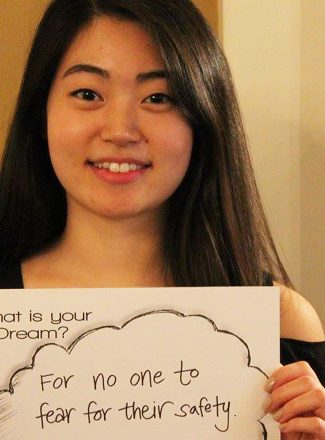 hat is your
Dream?
For no one to
fear for their safety.